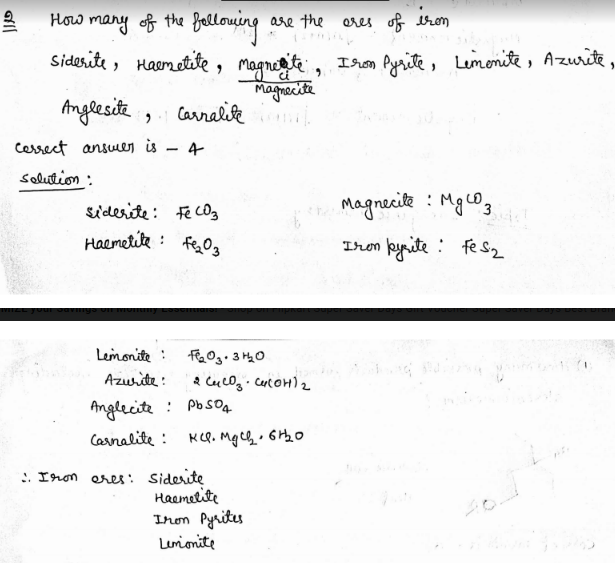 Q How many of the following are the ores of iron
Siderite, Haemetite, Magnecite, Iron Pyrite, Limonite, Azurite,
Magnecite
Anglesite, Carnalite
Correct answer is - 4
Solution:
Siderite: FeCO3
Magnecite: MgCO3
Haemetite: Fe2O3
Iron pyrite: FeS2
Limonite: Fe2O3.3H2O
Azurite: 2CuCO3.Cu(OH)2
Anglecite: PbSO4
Carnalite: KCl.MgCl2.6H2O
∴ Iron ores: Siderite
Haemetite
Iron Pyrites
Limonite